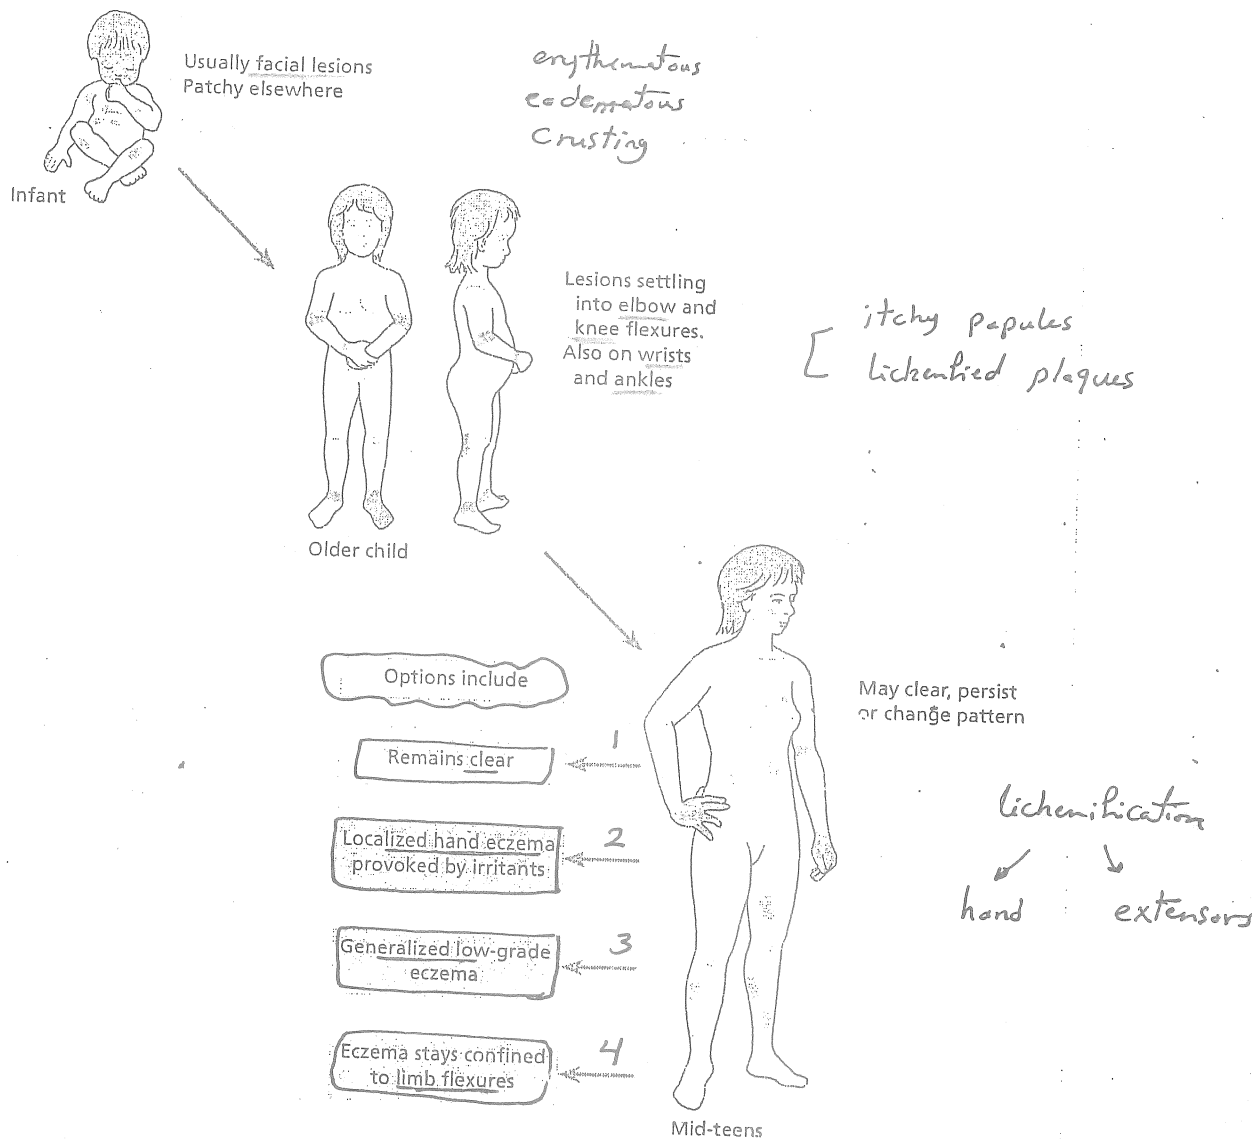 Usually facial lesions
Patchy elsewhere
erythematous
eodematous
Crusting
Infant
Lesions settling
into elbow and
knee flexures.
Also on wrists
and ankles
itchy papules
lichenified plaques
Older child
Options include
May clear, persist
or change pattern
1
Remains clear
2
Localized hand eczema
provoked by irritants
lichenification
hand extensors
3
Generalized low-grade
eczema
4
Eczema stays confined
to limb flexures
Mid-teens